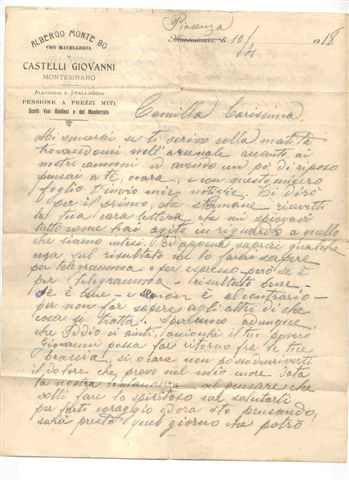 ALBERGO MONTE BO
CON MACELLERIA
DI
CASTELLI GIOVANNI
MONTESINARO
ALLOGGIO E STALLAGGIO
PENSIONE A PREZZI MITI
Scelti Vini Biellesi e del Monferrato
Piacenza
Montesinaro, li 10/4 1918
Camilla Carissima.
Mi scuserai se ti scrivo colla matita
trovandomi nell'arsenale accanto ai
nostri cammini ed avendo un pò di riposo
pensai a te, cara, e con questo misero
foglio t'invio mie notizie. Ti dirò
per il primo, che stamane ricevetti
la tua cara lettera che mi spiegavi
tutto come hai agito in riguardo a quello
che siamo intesi. Se appena saprai qualche
cosa sul risultato me lo farai sapere
per telegramma o per espresso però se è
per telegramma - risultato bene.
se è bene - e se non è al contrario -
per non far sapere agli altri di che
cosa si tratta. Speriamo adunque
che Iddio ci aiuti, acciocchè il tuo povero
Giovanni possa far ritorno fra le tue
braccia, si o cara non posso descriverti
il dolore che provo nel mio cuore. Data
la nostra lontananza al pensare che
volli fare lo spiritoso sul salutarti
per farti coraggio ed ora sto pensando,
sarà presto quel giorno che potrò